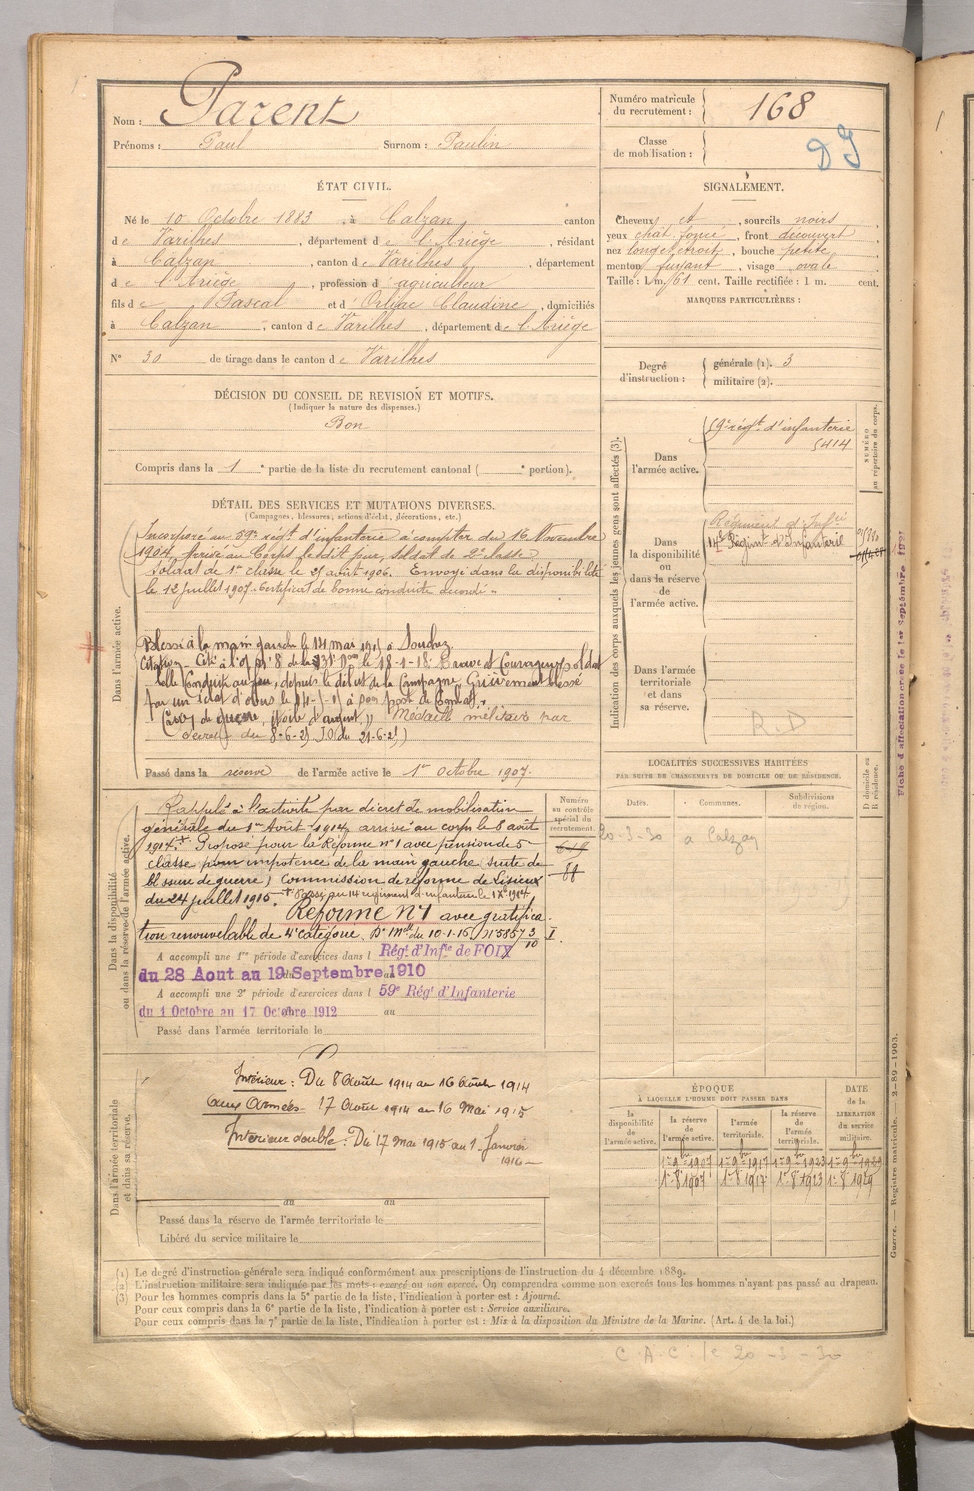 Nom : Parent
Prénoms : Paul Surnom : Paulin
Numéro matricule du recrutement : 168
Classe de mobilisation :
ÉTAT CIVIL.
Né le 10 Octobre 1883, à Calzan canton
de Varilhes, département de l'Ariège, résidant
à Calzan, canton de Varilhes, département
de l'Ariège, profession d'agriculteur
fils de Pascal et d'Orliac Claudine, domiciliés
à Calzan, canton de Varilhes, département de l'Ariège
N° 30 de tirage dans le canton de Varilhes
SIGNALEMENT.
Cheveux et, sourcils noirs
yeux chat. foncé, front découvert,
nez long et étroit, bouche petite,
menton fuyant, visage ovale
Taille : 1 m. 61 cent. Taille rectifiée : 1 m. cent.
MARQUES PARTICULIÈRES :
Degré d'instruction : générale (1). 3
militaire (2).
DÉCISION DU CONSEIL DE REVISION ET MOTIFS.
(Indiquer la nature des dispenses.)
Bon
Compris dans la 1e partie de la liste du recrutement cantonal ( e portion).
Indication des corps auxquels les jeunes gens sont affectés (3).
Dans l'armée active.
59e régt d'infanterie
5414
NUMÉRO au répertoire du corps.
Dans la disponibilité ou dans la réserve de l'armée active.
Régiment d'Infrie
14e Régint d'Infanterie
Dans l'armée territoriale et dans sa réserve.
R. D
DÉTAIL DES SERVICES ET MUTATIONS DIVERSES.
(Campagnes, blessures, actions d'éclat, décorations, etc.)
Dans l'armée active.
Incorporé au 59e régt d'infanterie à compter du 16 Novembre
1904, arrivé au Corps le dit jour, soldat de 2e classe
Soldat de 1re classe le 25 août 1906. Envoyé dans la disponibilité
le 12 juillet 1907. Certificat de bonne conduite accordé.
Blessé à la main gauche le 14 mai 1915 à Souchez.
Citation - Cité à l'of. n° 8 de la 131e Don le 18-1-18. Brave et Courageux soldat
belle Conduite au feu, depuis le début de la Campagne. Grièvement blessé
par un éclat d'obus le 14-5-15 à son poste de Combat.
Croix de guerre, étoile d'argent. Médaille militaire par
décret du 8-6-25 J.O. du 21-6-25)
Passé dans la réserve de l'armée active le 1er octobre 1907.
Dans la disponibilité ou dans la réserve de l'armée active.
Rappelé à l'activité par décret de mobilisation
générale du 1er Août 1914, arrivé au corps le 8 août
1914. + Proposé pour la Réforme n° 1 avec pension de 5e
classe pour impotence de la main gauche suite de
blessure de guerre, Commission de réforme de Lisieux
du 24 juillet 1915. + Passé au 14 régiment d'infanterie le
Réforme N° 1 avec gratifica-
tion renouvelable de 4e catégorie. Dn Mlle du 10-1-16
Numéro au contrôle spécial du recrutement.
A accompli une 1re période d'exercices dans l Régt d'Infie de FOIX
du 28 Aout au 19 Septembre 1910
A accompli une 2e période d'exercices dans l 59e Régt d'Infanterie
du 1 Octobre au 17 Octobre 1912 au
Passé dans l'armée territoriale le
LOCALITÉS SUCCESSIVES HABITÉES
PAR SUITE DE CHANGEMENTS DE DOMICILE OU DE RÉSIDENCE.
Dates. Communes. Subdivisions de région. D domicile ou R résidence.
20-3-30 à Calzan
Dans l'armée territoriale et dans sa réserve.
Intérieur : Du 8 Août 1914 au 16 Août 1914
Aux Armées - 17 Août 1914 au 16 Mai 1915
Intérieur double : Du 17 Mai 1915 au 1er Janvier
1916 -
au au
Passé dans la réserve de l'armée territoriale le
Libéré du service militaire le
ÉPOQUE
À LAQUELLE L'HOMME DOIT PASSER DANS
la disponibilité de l'armée active. la réserve de l'armée active. l'armée territoriale. la réserve de l'armée territoriale. DATE de la LIBÉRATION du service militaire.
1er 9bre 1907 1er 9bre 1917 1er 9bre 1923 1er 9bre 1929
1er 8bre 1907 1er 8bre 1917 1er 8bre 1923 1er 8bre 1929
Fiche d'affectation créée le 1er Septembre
Guerre. — Registre matricule. — 2-89-1903.
(1) Le degré d'instruction générale sera indiqué conformément aux prescriptions de l'instruction du 4 décembre 1889.
(2) L'instruction militaire sera indiquée par les mots : exercé ou non exercé. On comprendra comme non exercés tous les hommes n'ayant pas passé au drapeau.
(3) Pour les hommes compris dans la 5e partie de la liste, l'indication à porter est : Ajourné.
Pour ceux compris dans la 6e partie de la liste, l'indication à porter est : Service auxiliaire.
Pour ceux compris dans la 7e partie de la liste, l'indication à porter est : Mis à la disposition du Ministre de la Marine. (Art. 4 de la loi.)
C.A.C. le 20-3-30